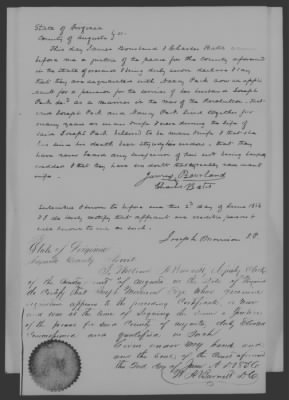 State of Virginia
County of Augusta
This day James Rowland & Charles Bates came
before me a justice of the peace for the County aforesaid
in the State aforesaid & being duly sworn declare & say
that they are acquainted with Nancy Park now an appli
cant for a pension for the services of her husband Joseph
Park as a soldier in the war of the Revolution. that
said Joseph Park and Nancy Park lived together for
many years as man & wife & were during the life of
said Joseph Park believed to be man & wife & that she
has since his death been his widow. that they
have never heard any of this not being
& that they have no doubt that she was his
wife.
James Rowland
Charles Bates
Subscribed & sworn to before me this 2d day of June 185
& I do certify that affiants are credible persons &
well known to me as such.
Joseph Morrison J.P.
State of Virginia
Augusta County Court
I, William A Burnett, Deputy Clerk
of the County Court of Augusta in the State of Virginia
do Certify that Joseph Morrison Esqr. whose genuine
signature appears to the preceding Certificate, is now
and was at the time of signing the same a Justice
of the peace for said County of Augusta, duly Elected
Commissioned and qualified as such.
Given under my hand and
and the seal of the Court aforesaid
this 2nd day of June A.D. 185
W. A. Burnett D.C.